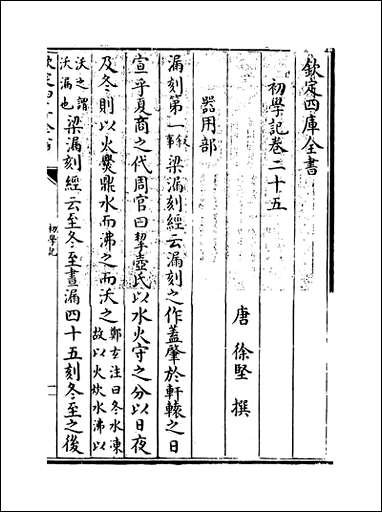 欽定四庫全書
初學記卷二十五
唐 徐堅 撰
器用部
漏刻第一叙事梁漏刻經云漏刻之作蓋肇於軒轅之日
宣乎夏商之代周官曰挈壺氏以水火守之分以日夜
及冬則以火爨鼎水而沸之而沃之鄭玄注曰冬水凍故以火炊水沸以
沃之謂沃漏也梁漏刻經云至冬至晝漏四十五刻冬至之後
初學記
一